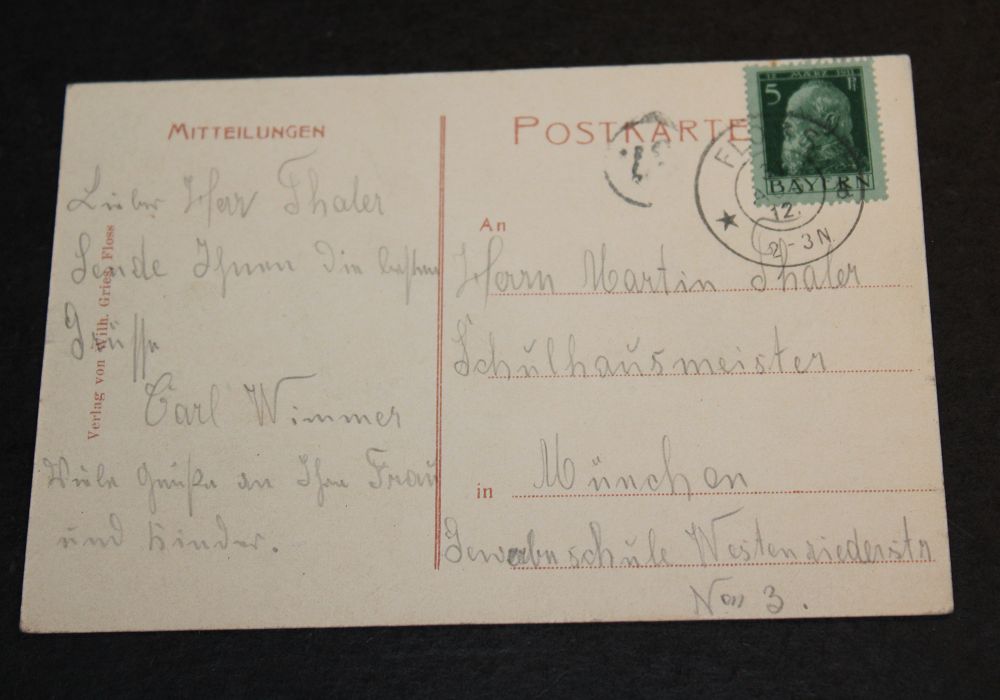 MITTEILUNGEN
Lieber Herr Thaler
Sende Ihnen die besten
Grüsse
Carl Wimmer
Viele Grüße an Ihre Frau
und Kinder.
Verlag von Wilh. Gries, Floss
POSTKARTE
12. MÄRZ 1911
5 Pf
BAYERN
FLO
12.
2-3N.
An
Herrn Martin Thaler
Schulhausmeister
in München
Gewerbeschule Westenriederstr
No 3.